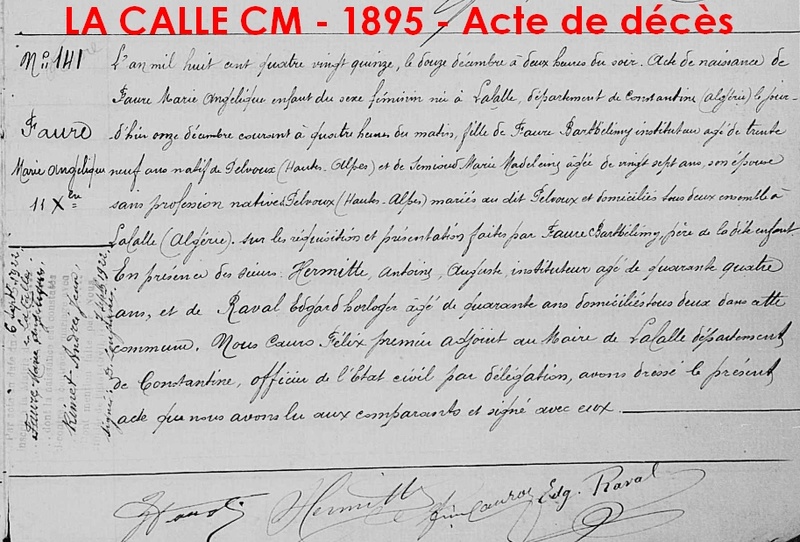 LA CALLE CM - 1895 - Acte de décès
N° 141
Faure
Marie Angélique
11 Xbre
L'an mil huit cent quatre vingt quinze, le douze décembre à deux heures du soir. Acte de naissance de
Faure Marie Angélique enfant du sexe féminin née à LaCalle, département de Constantine (Algérie) le jour-
d'hier onze décembre courant à quatre heures du matin, fille de Faure Barthélémy instituteur agé de trente
neuf ans natif de Pelvoux (Hautes-Alpes) et de Semioud Marie Madeleine agée de vingt sept ans, son épouse
sans profession native de Pelvoux (Hautes-Alpes) mariés au dit Pelvoux et domiciliés tous deux ensemble à
LaCalle (Algérie). sur les réquisition et présentation faites par Faure Barthélémy, père de la dite enfant.
En présence des sieurs: Hermitte, Antoine, Auguste, instituteur agé de quarante quatre
ans, et de Raval Edgard horloger agé de quarante ans domiciliés tous deux dans cette
commune. Nous Cauro Félix premier adjoint au Maire de LaCalle département
de Constantine, officier de l'Etat civil par délégation, avons dressé le présent
acte que nous avons lu aux comparants et signé avec eux.
6 Sept. 1922
LaCalle
Faure Marie Angélique
André Jean
7 Sept 1922
Hermitte
Cauro
Edg. Raval